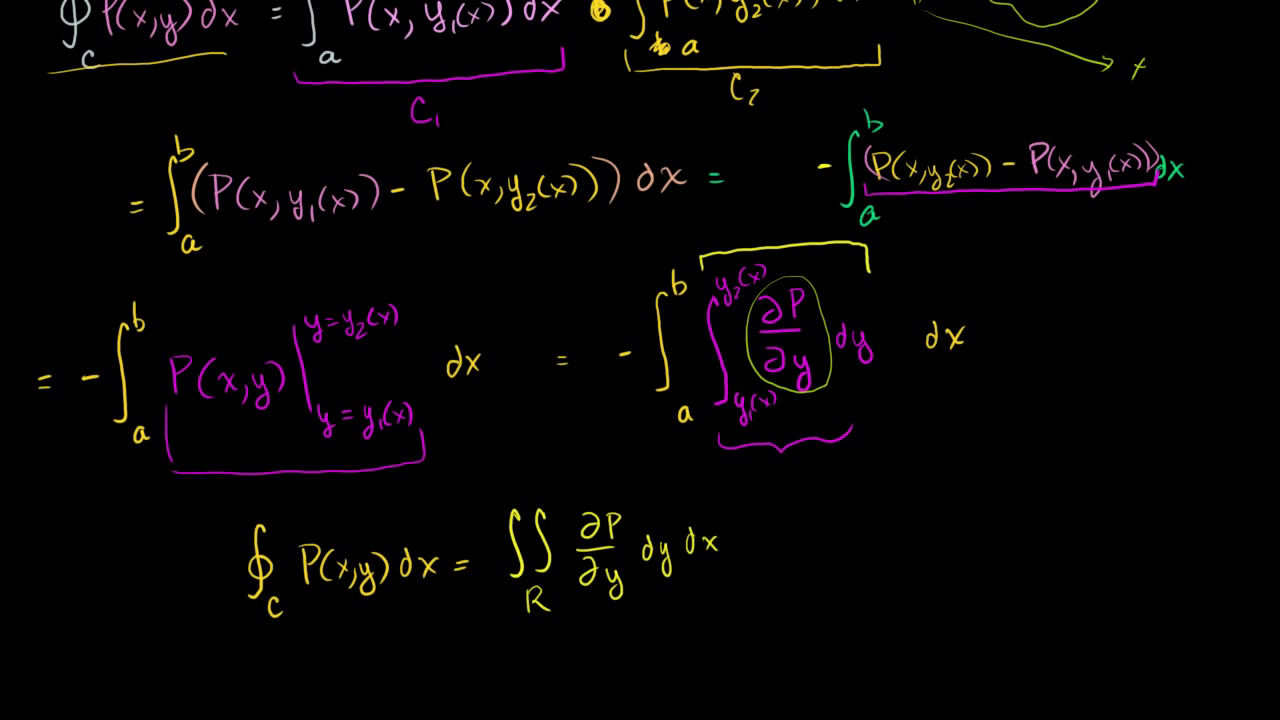 ∮_C P(x,y) dx = ∫_a P(x, y₁(x)) dx ∫_a P(x, y₂(x))
x
C₁
C₂
= ∫_a^b (P(x, y₁(x)) - P(x, y₂(x))) dx = - ∫_a^b (P(x, y₂(x)) - P(x, y₁(x))) dx
= - ∫_a^b P(x,y) |_{y = y₁(x)}^{y = y₂(x)} dx = - ∫_a^b ∫_{y₁(x)}^{y₂(x)} ∂P/∂y dy dx
∮_C P(x,y) dx = ∬_R ∂P/∂y dy dx